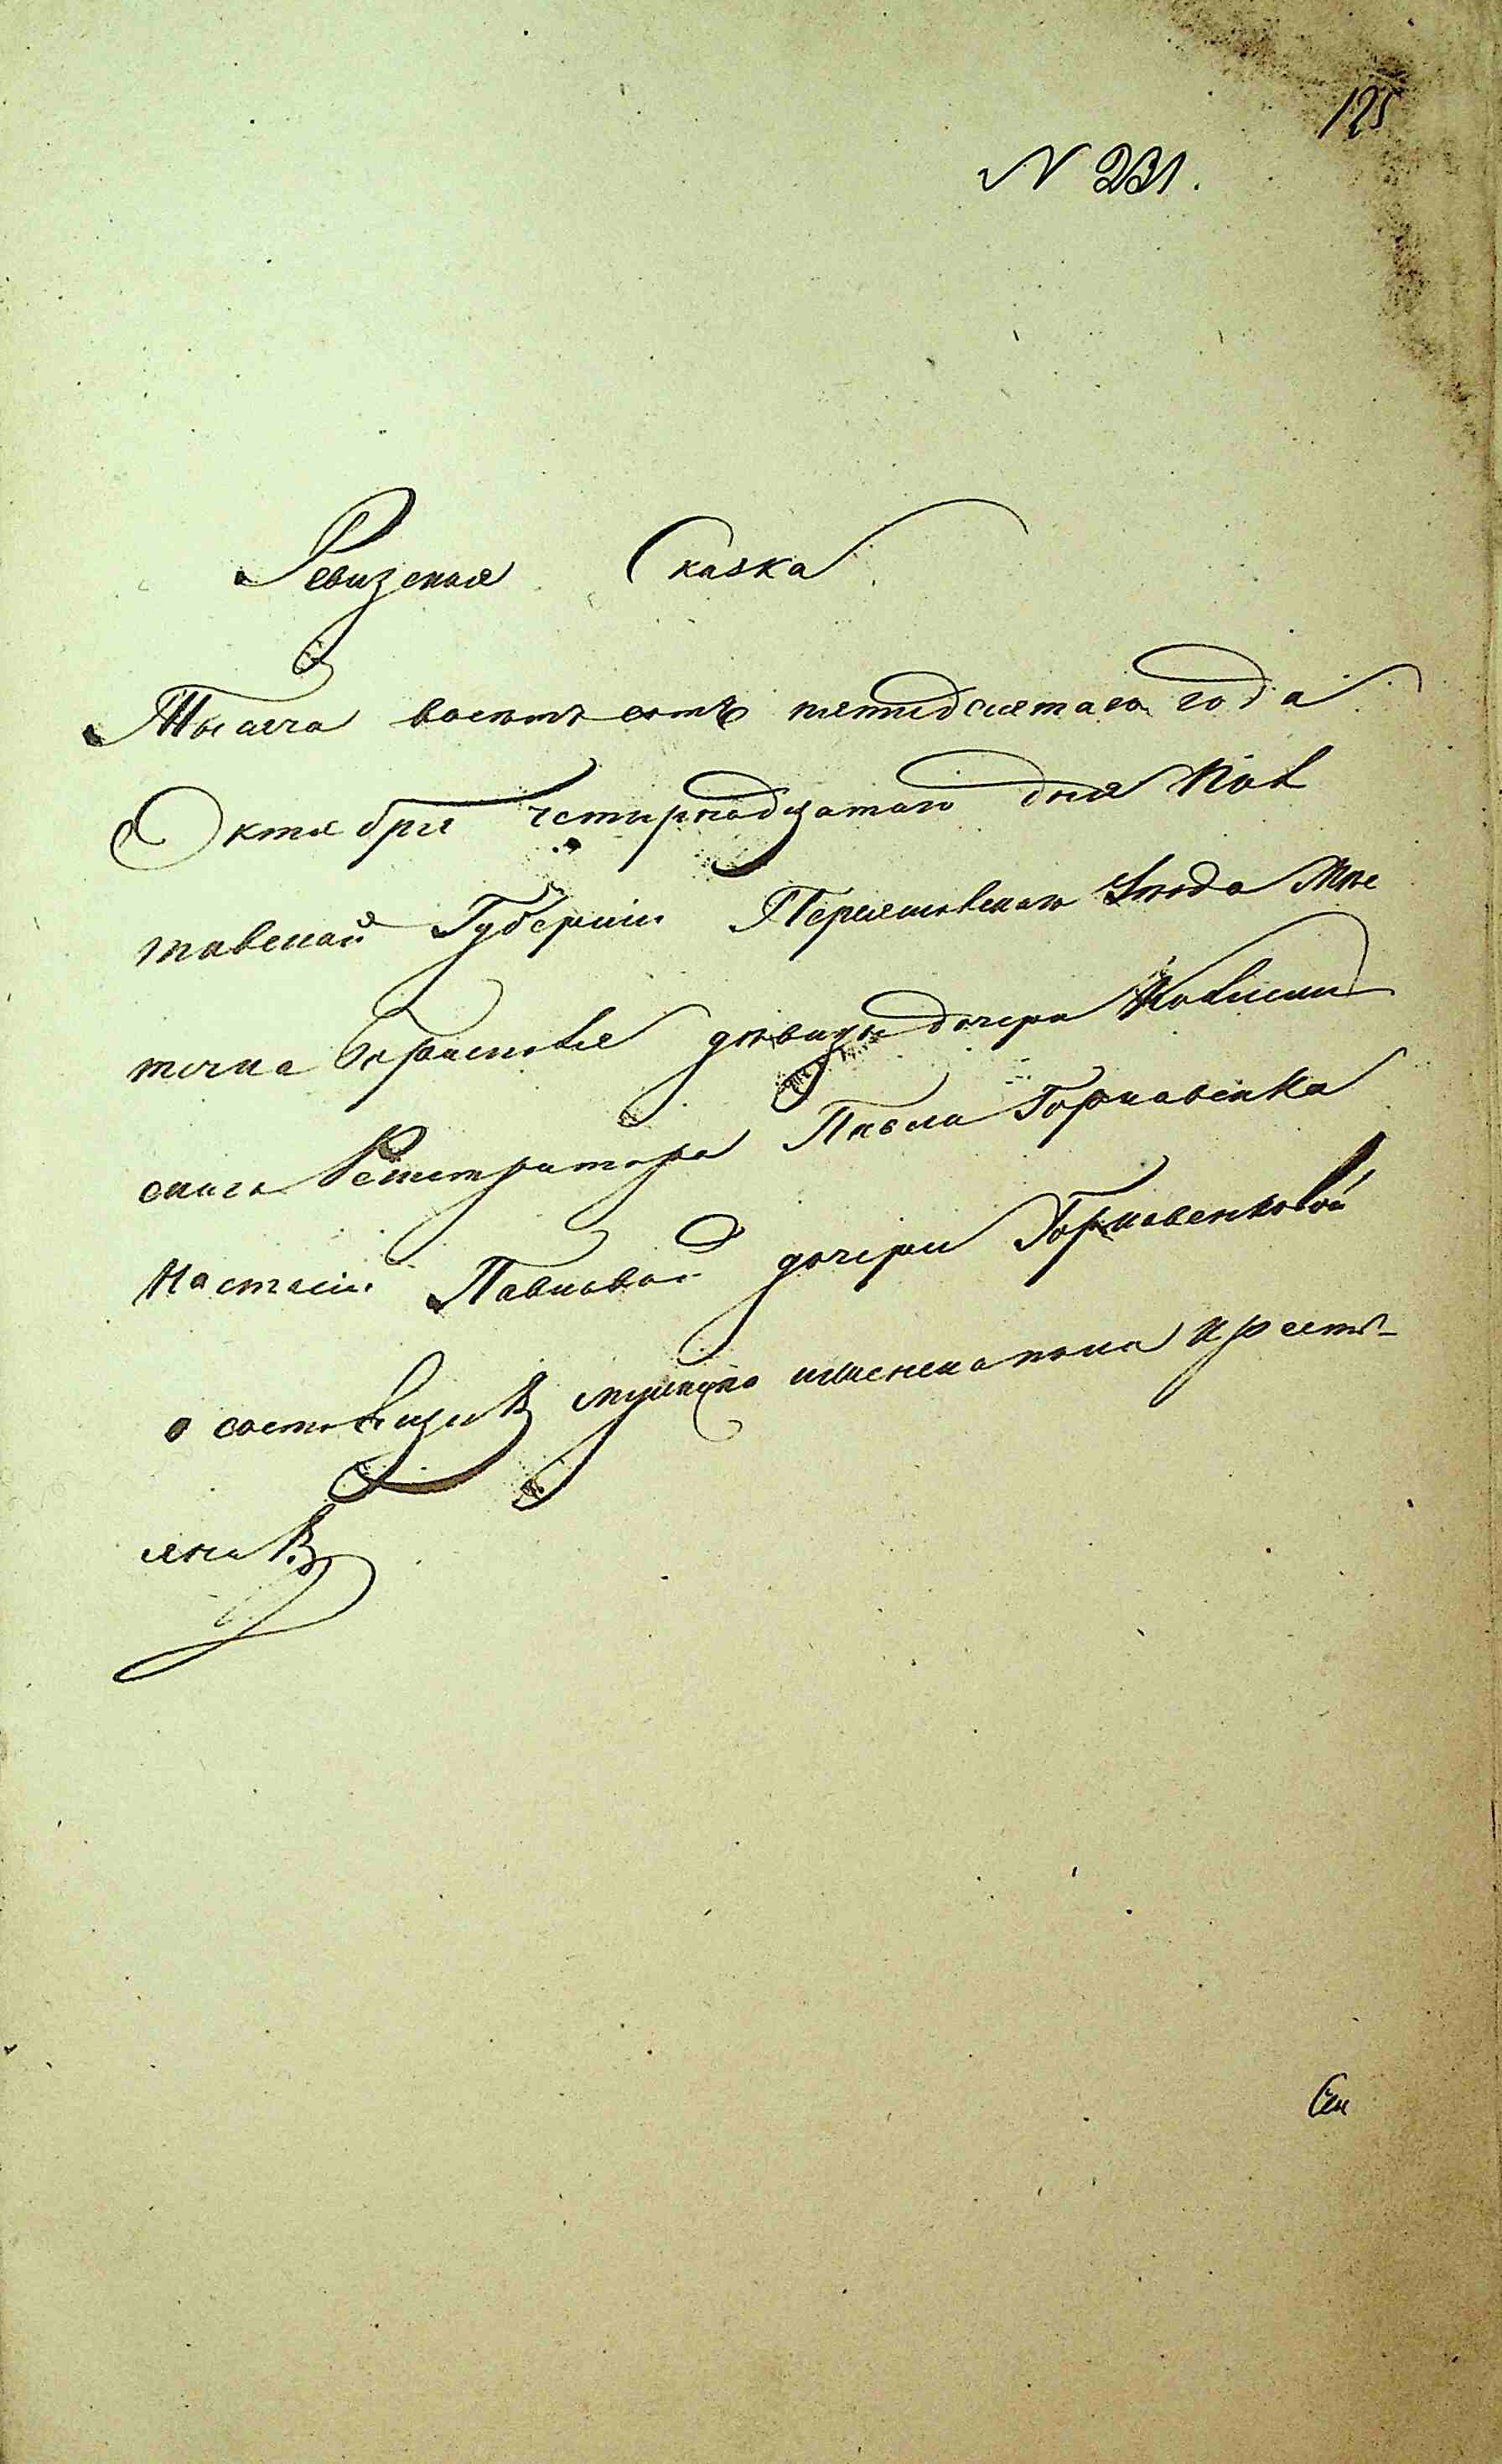 125
N 231.
Ревизская Сказка
Тысяча восемъ сотъ пятидсятаго года
Октября четирнадцатаго дня Пол
тавской Губернии Переясловскаго Уезда Мѣс
течка Барисполя девицы дочери Колиски
скаго Регистратора Павла Горковенка
Настасіи Павловой дочери Горковенковой
о состоящихъ мужеска и женска пола кресть-
янахъ